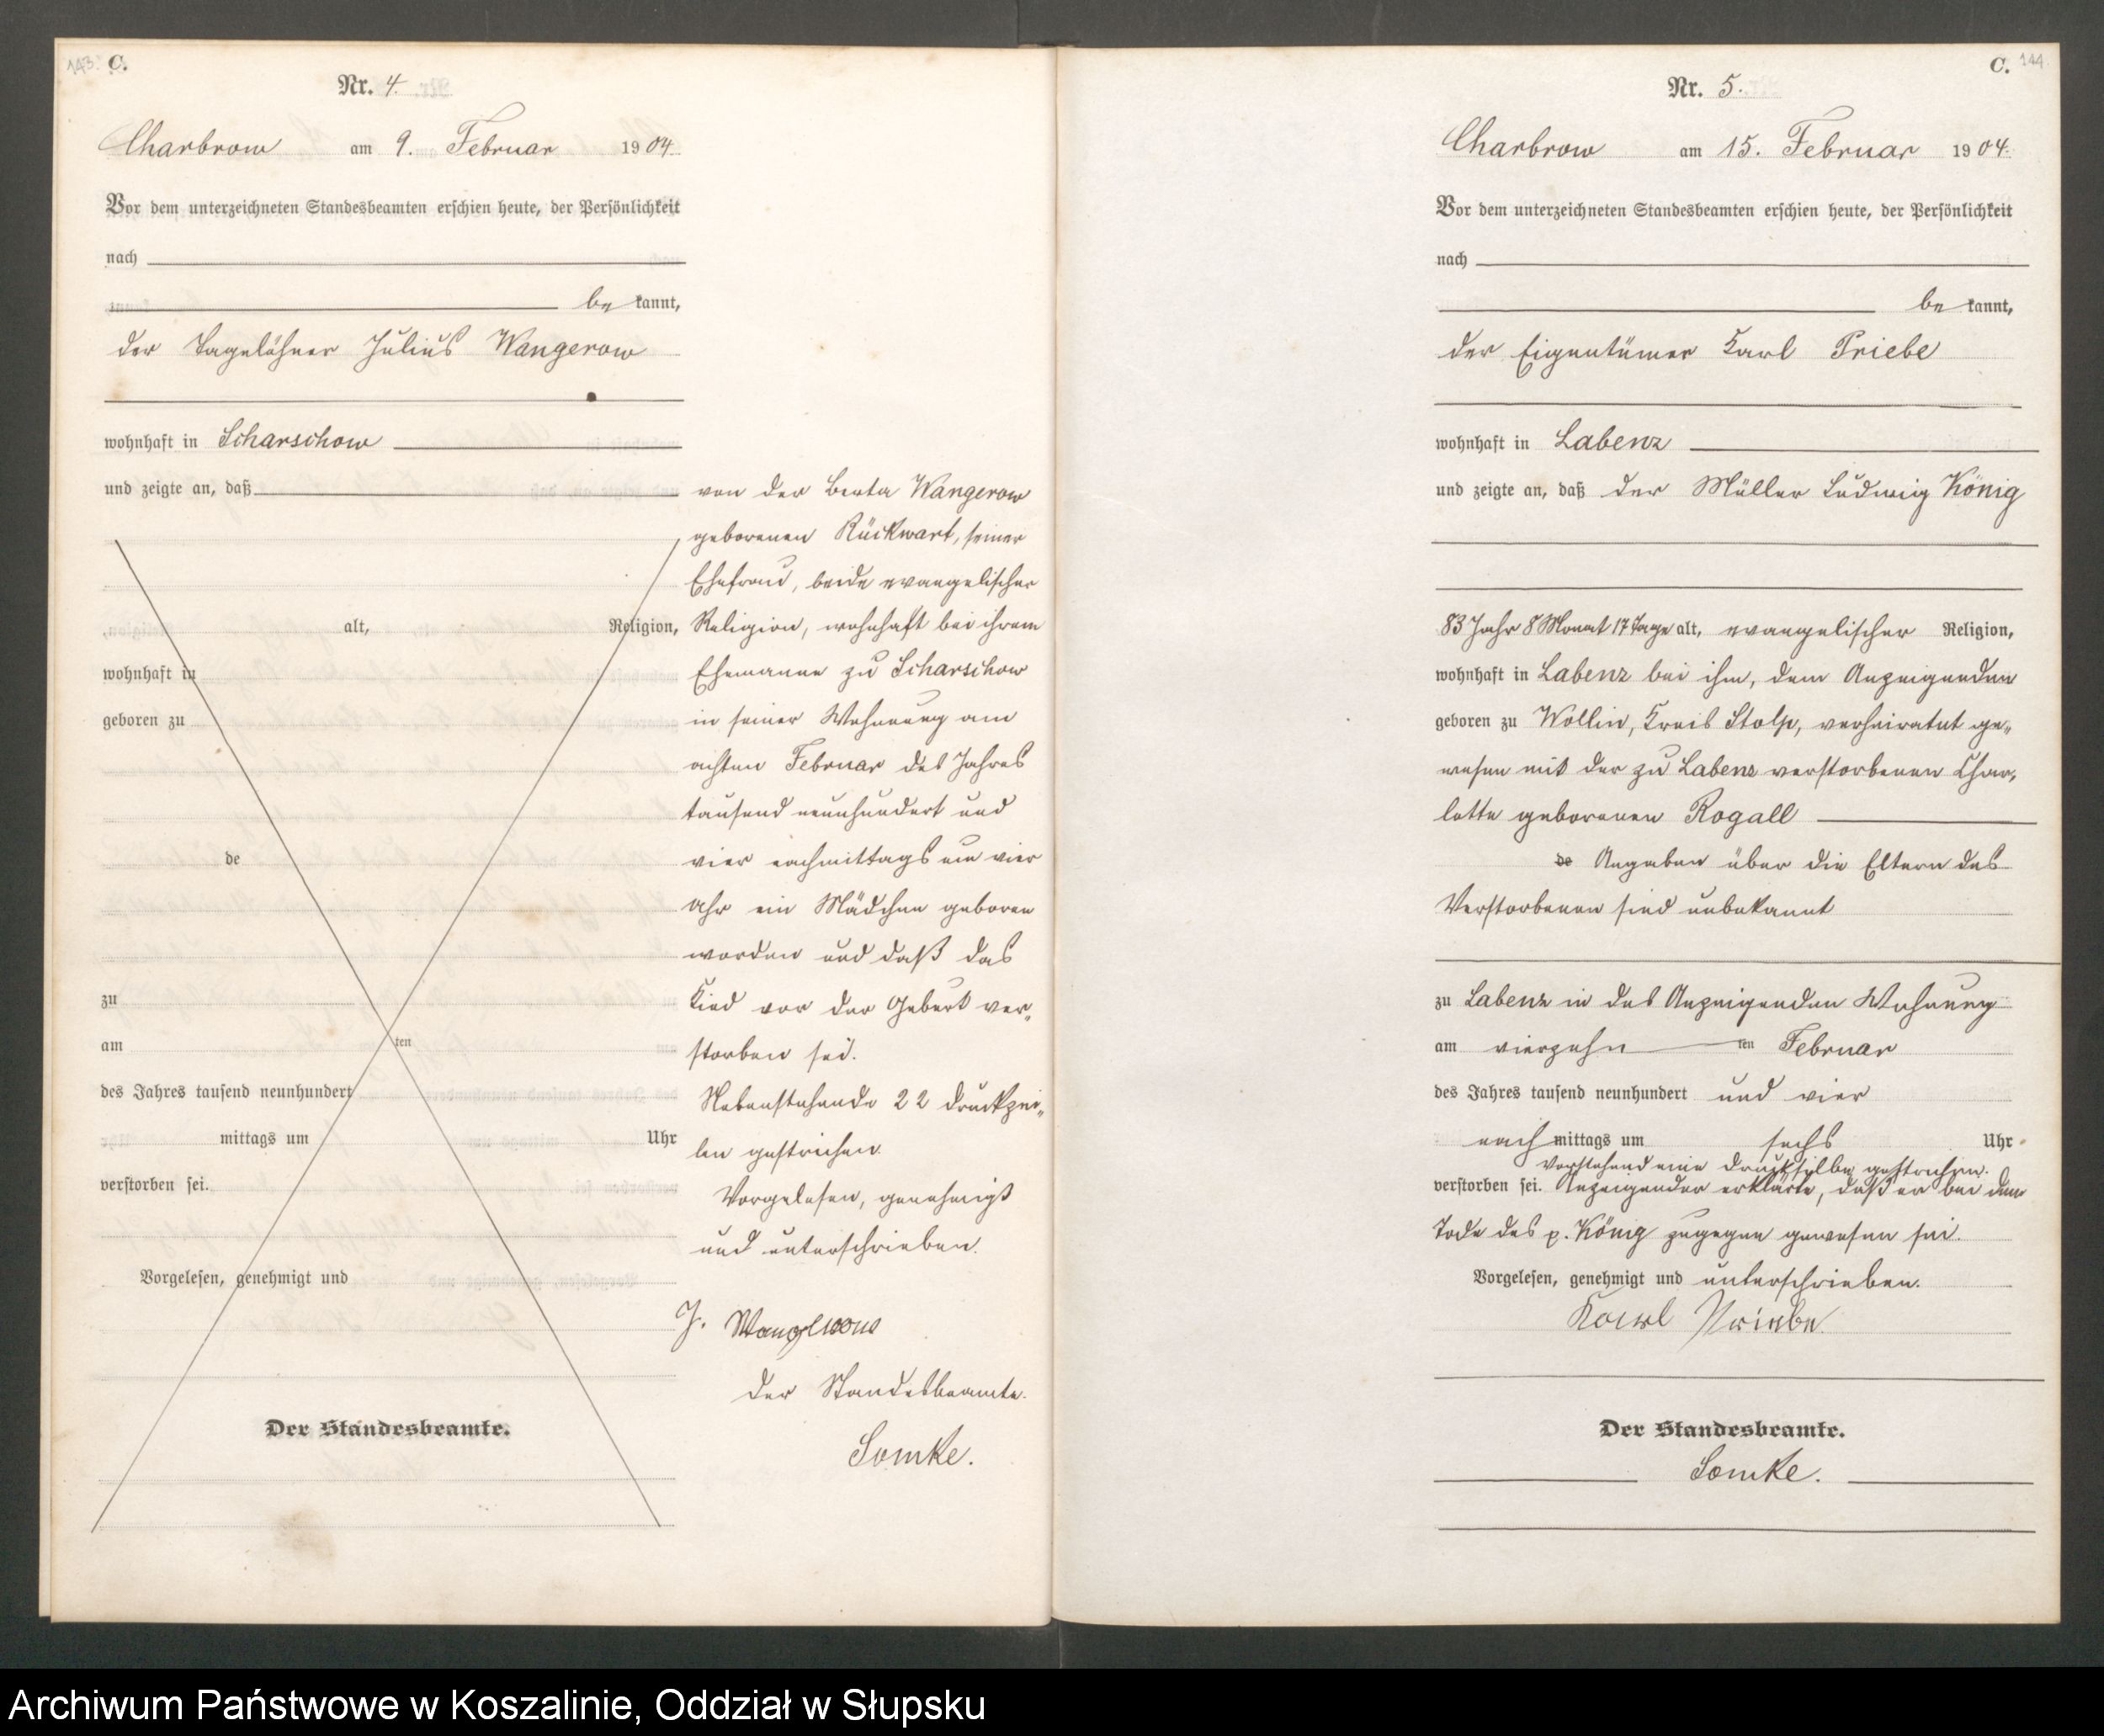 143. C.
Nr. 4.
Charbrow am 9. Februar 1904.
Vor dem unterzeichneten Standesbeamten erschien heute, der Persönlichkeit
nach
be kannt,
der Tagelöhner Julius Wangerow
wohnhaft in Scharschow
und zeigte an, daß
von der Berta Wangerow
geborenen Rückwart, seiner
Ehefrau, beide evangelischer
alt, Religion,
Religion, wohnhaft bei ihrem
wohnhaft in
Ehemanne zu Scharschow
geboren zu
in seiner Wohnung am
achten Februar des Jahres
tausend neunhundert und
de
vier nachmittags um vier
Uhr ein Mädchen geboren
worden und daß das
zu
Kind vor der Geburt ver-
am ten
storben sei.
des Jahres tausend neunhundert
Nebenstehende 22 Druckzei-
mittags um Uhr
len gestrichen.
verstorben sei.
Vorgelesen, genehmigt
und unterschrieben.
Vorgelesen, genehmigt und
J. Wangerow
Der Standesbeamte.
Der Standesbeamte.
Somke.
C. 144
Nr. 5.
Charbrow am 15. Februar 1904.
Vor dem unterzeichneten Standesbeamten erschien heute, der Persönlichkeit
nach
be kannt,
der Eigentümer Karl Priebe
wohnhaft in Labenz
und zeigte an, daß der Müller Ludwig König
83 Jahr 8 Monat 17 Tage alt, evangelischer Religion,
wohnhaft in Labenz bei ihm, dem Anzeigenden
geboren zu Wollin, Kreis Stolp, verheiratet ge-
wesen mit der zu Labenz verstorbenen Char-
lotte geborenen Rogall
de Angaben über die Eltern des
Verstorbenen sind unbekannt
zu Labenz in des Anzeigenden Wohnung
am vierzehn ten Februar
des Jahres tausend neunhundert und vier
nach mittags um sechs Uhr
Vorstehend eine Drucksylbe gestrichen.
verstorben sei. Anzeigender erklärte, daß er bei dem
Tode des p. König zugegen gewesen sei.
Vorgelesen, genehmigt und unterschrieben.
Karl Priebe
Der Standesbeamte.
Somke.
Archiwum Państwowe w Koszalinie, Oddział w Słupsku